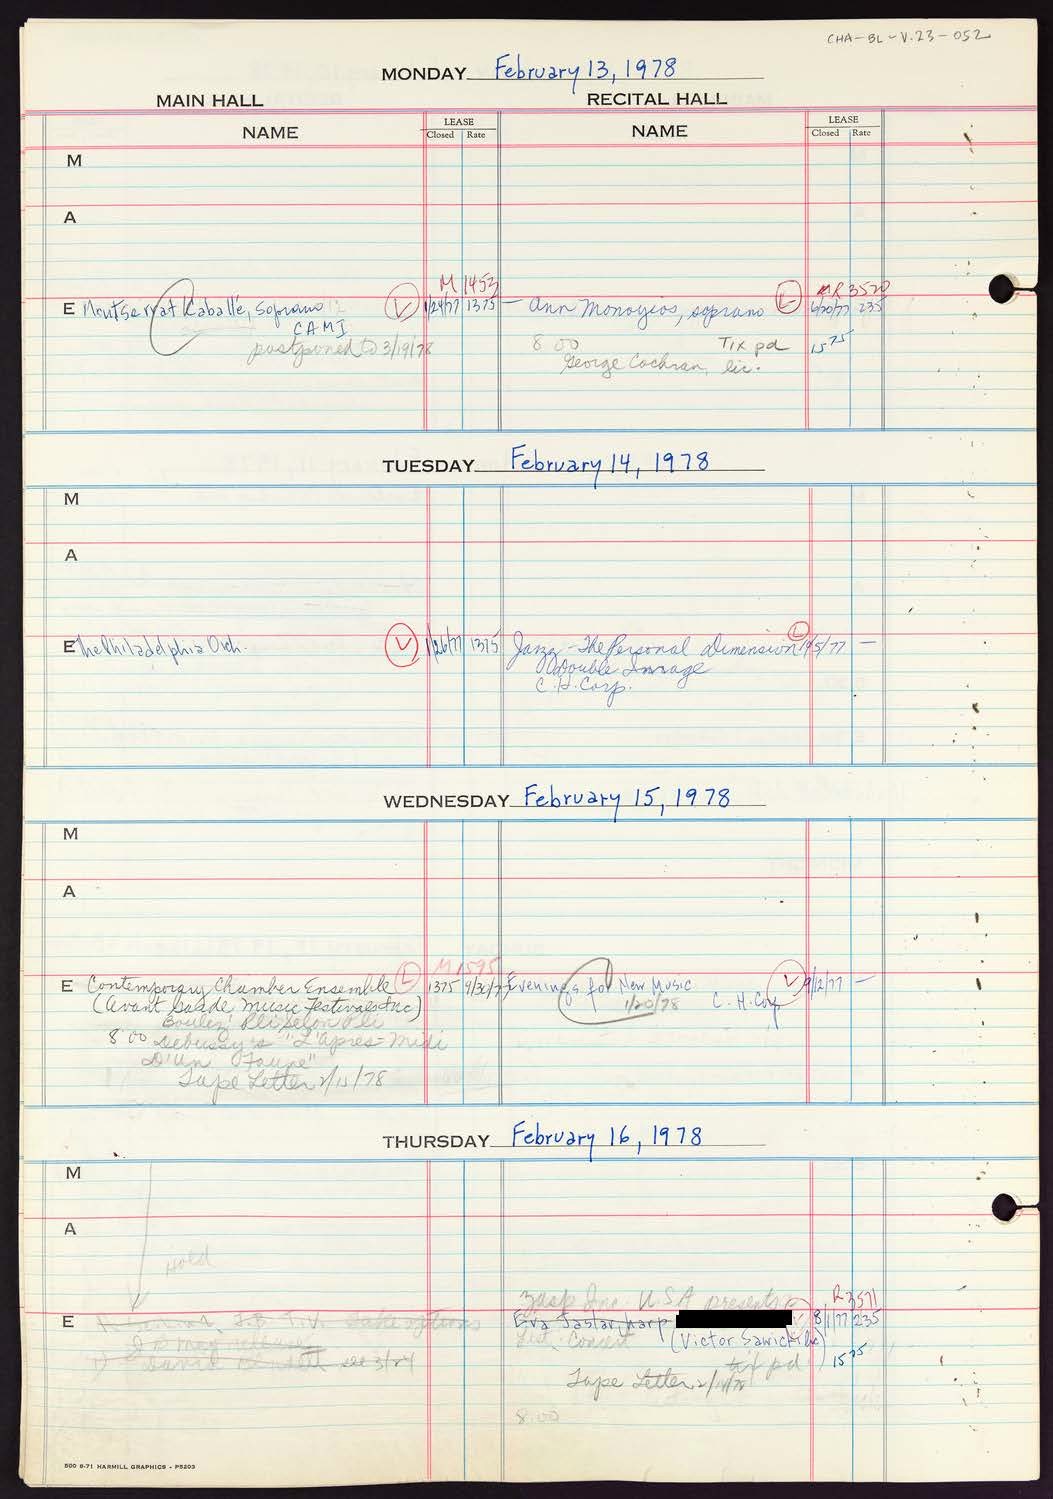 CHA-BL-V.23-052
MONDAY February 13, 1978
MAIN HALL RECITAL HALL
NAME LEASE Closed Rate NAME LEASE Closed Rate
M
A
M 1453 MR 3520
E Montserrat Caballé, soprano L 1/24/77 1375 — Ann Monoyios, soprano L 6/20/77 235
CAMI
postponed to 3/19/78
8 00 Tix pd 15 75
George Cochran, lic.
TUESDAY February 14, 1978
M
A
E The Philadelphia Orch. L 1/26/77 1375 Jazz - The Personal Dimension L /5/77 —
Double Image
C.H. Corp.
WEDNESDAY February 15, 1978
M
A
M 1595
E Contemporary Chamber Ensemble L 1375 9/30/77 Evenings for New Music L 9/12/77 —
(Avant Garde Music Festivals Inc) 1/20/78 C.H. Corp
Boulez' Pli Selon Pli
8 00 Debussy's "L'Apres-Midi
D'Un Faune"
Tape Letter 2/15/78
THURSDAY February 16, 1978
M
A
Hold
Inc. U.S.A. presents R 3571
E Eva Jaslar, harp 8/1/77 235
Concert (Victor Sawicki lic)
David see 3/24 tix pd 15 75
Tape Letter 2/14/78
8:00
500 6-71 HARMILL GRAPHICS - P5203